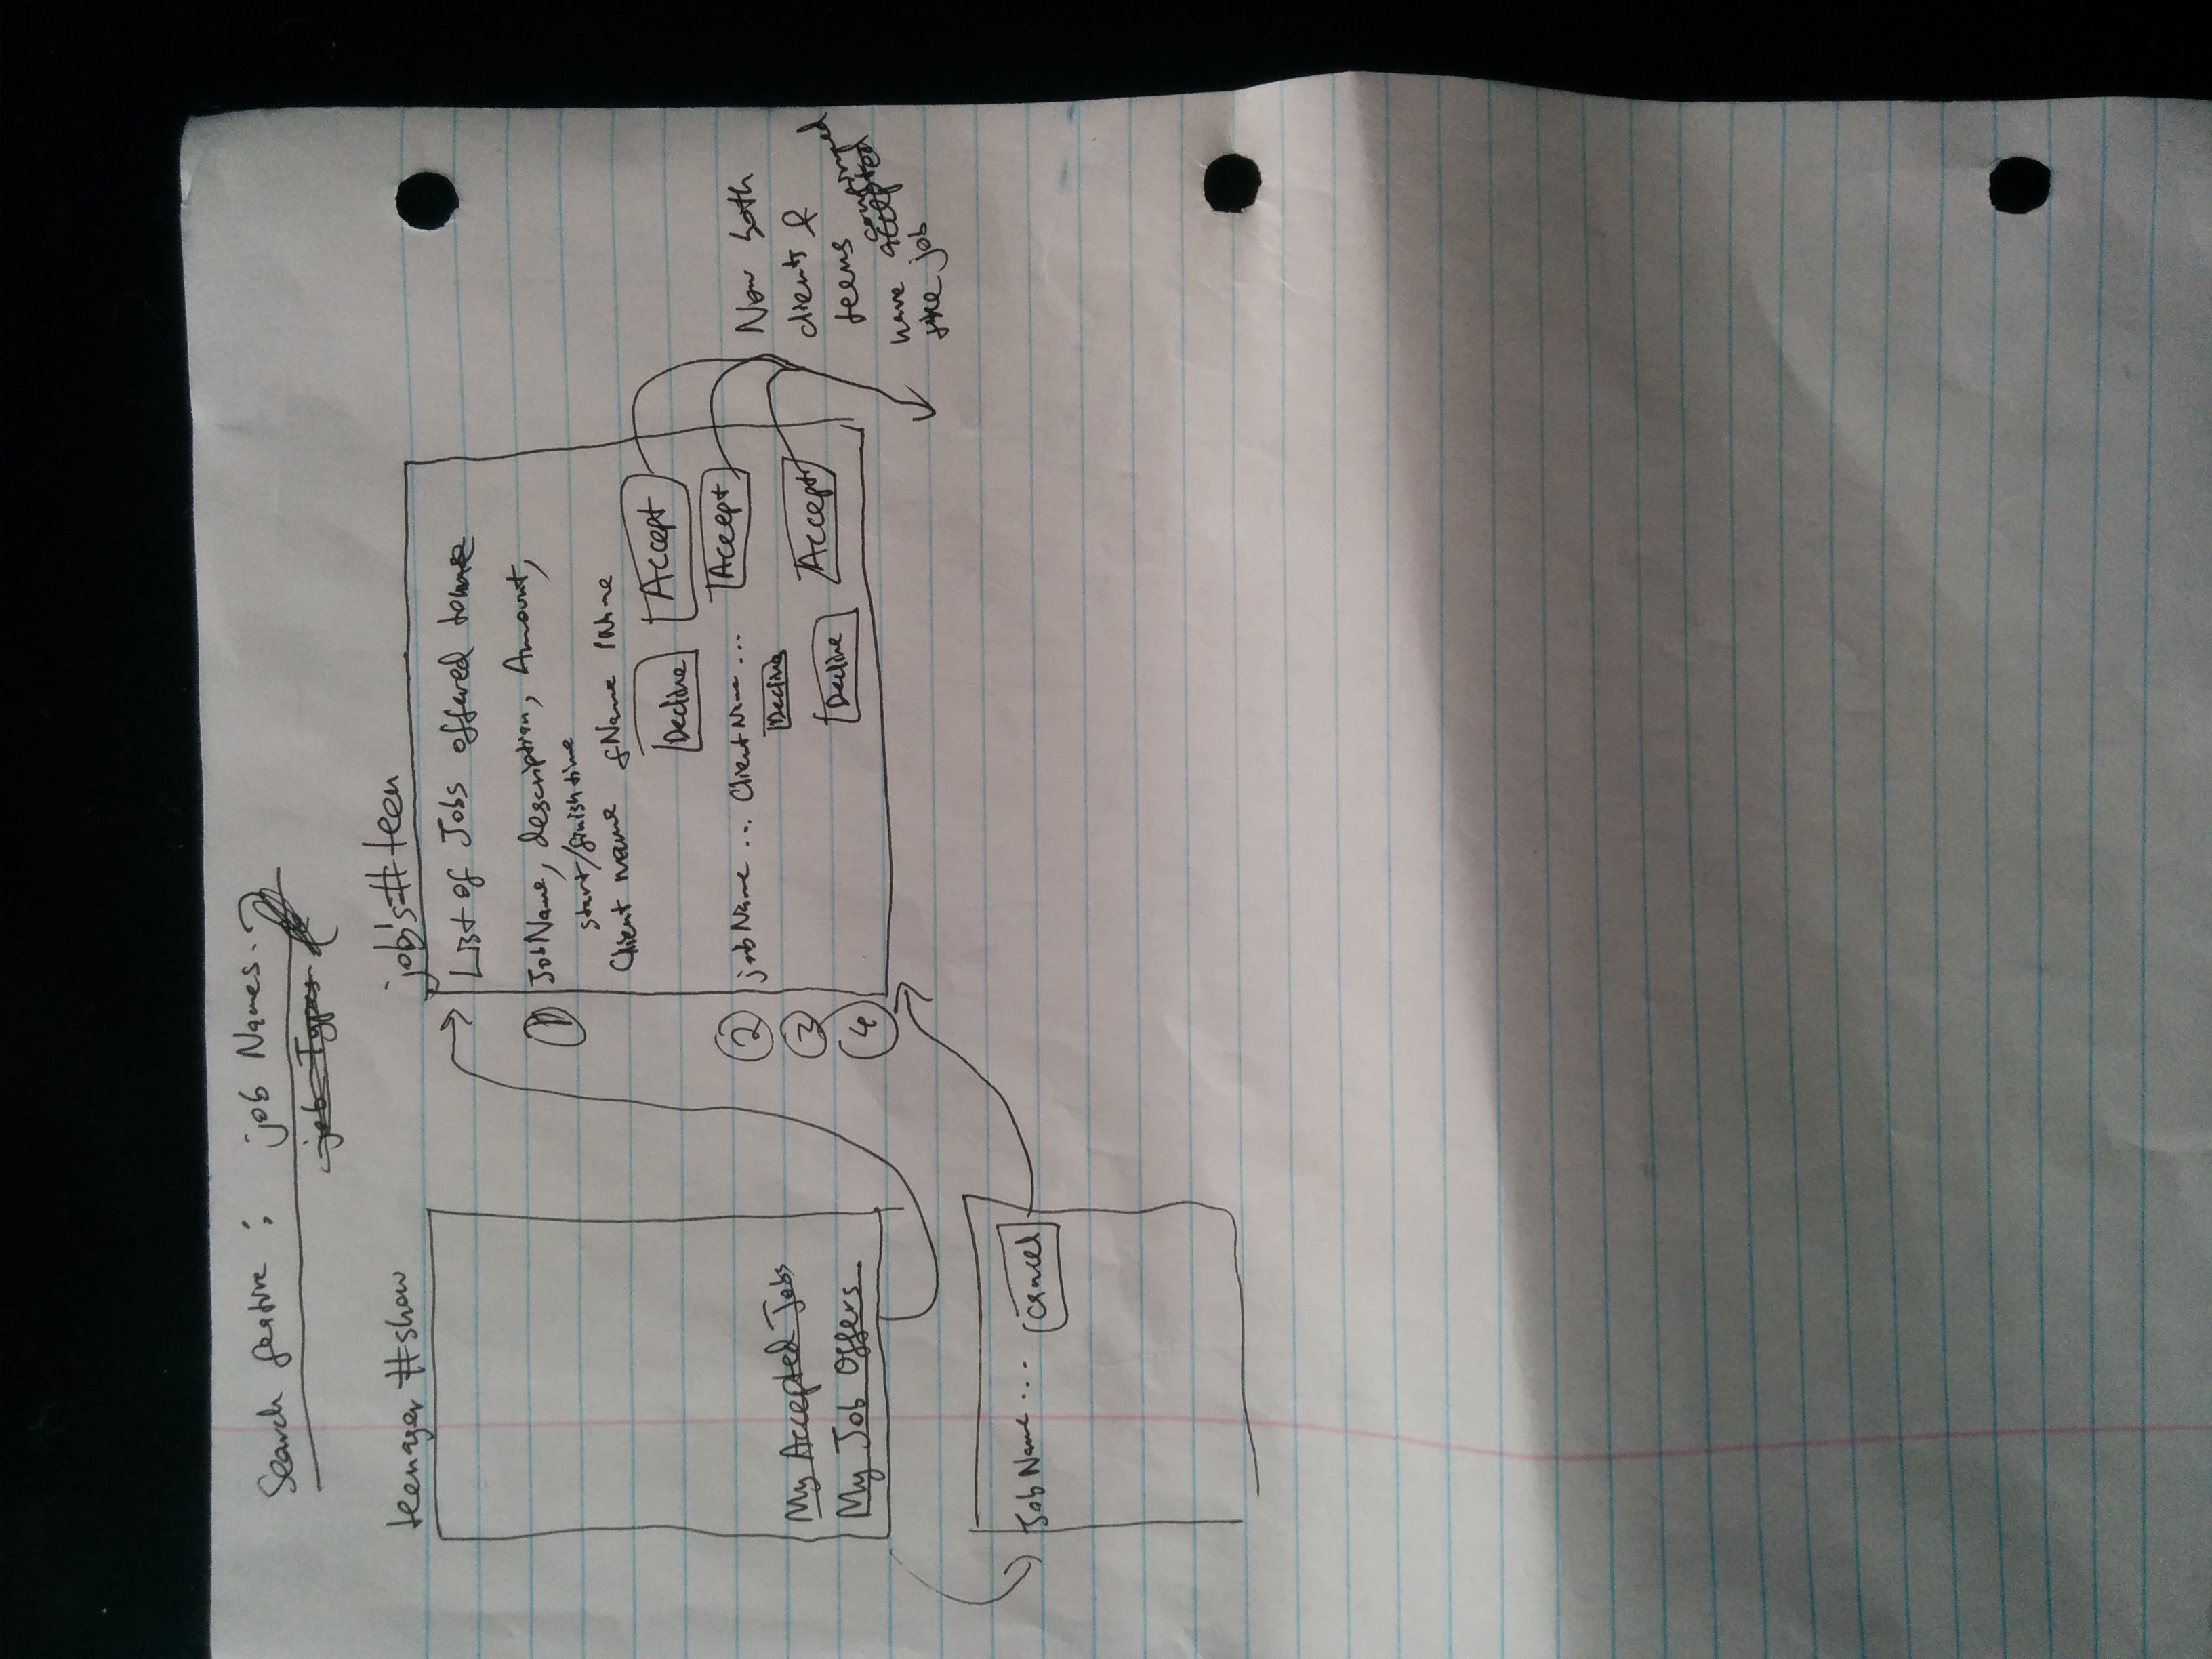 Search feature : job Names.
job Types
teenager #show
My Accepted Jobs
My Job Offers
JobName... Cancel
jobs#teen
List of Jobs offered to me
1 JobName, description, Amount,
start/finish time
Client name fName lName
Decline Accept
2 jobName ... ClientName ...
Decline Accept
3
4
Decline Accept
Now both
clients &
teens
have accepted confirmed
the job